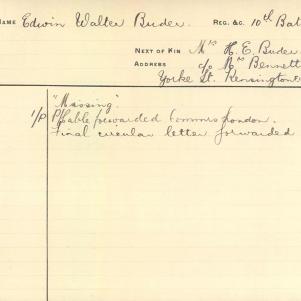 NAME Edwin Walter Buder. REG. &C. 10th Bat
NEXT OF KIN Mrs H. E. Buder
ADDRESS c/o Mrs Bennett
Yorke St. Kensington
"Missing".
1/P forwarded Commrs London.
Final circular letter forwarded